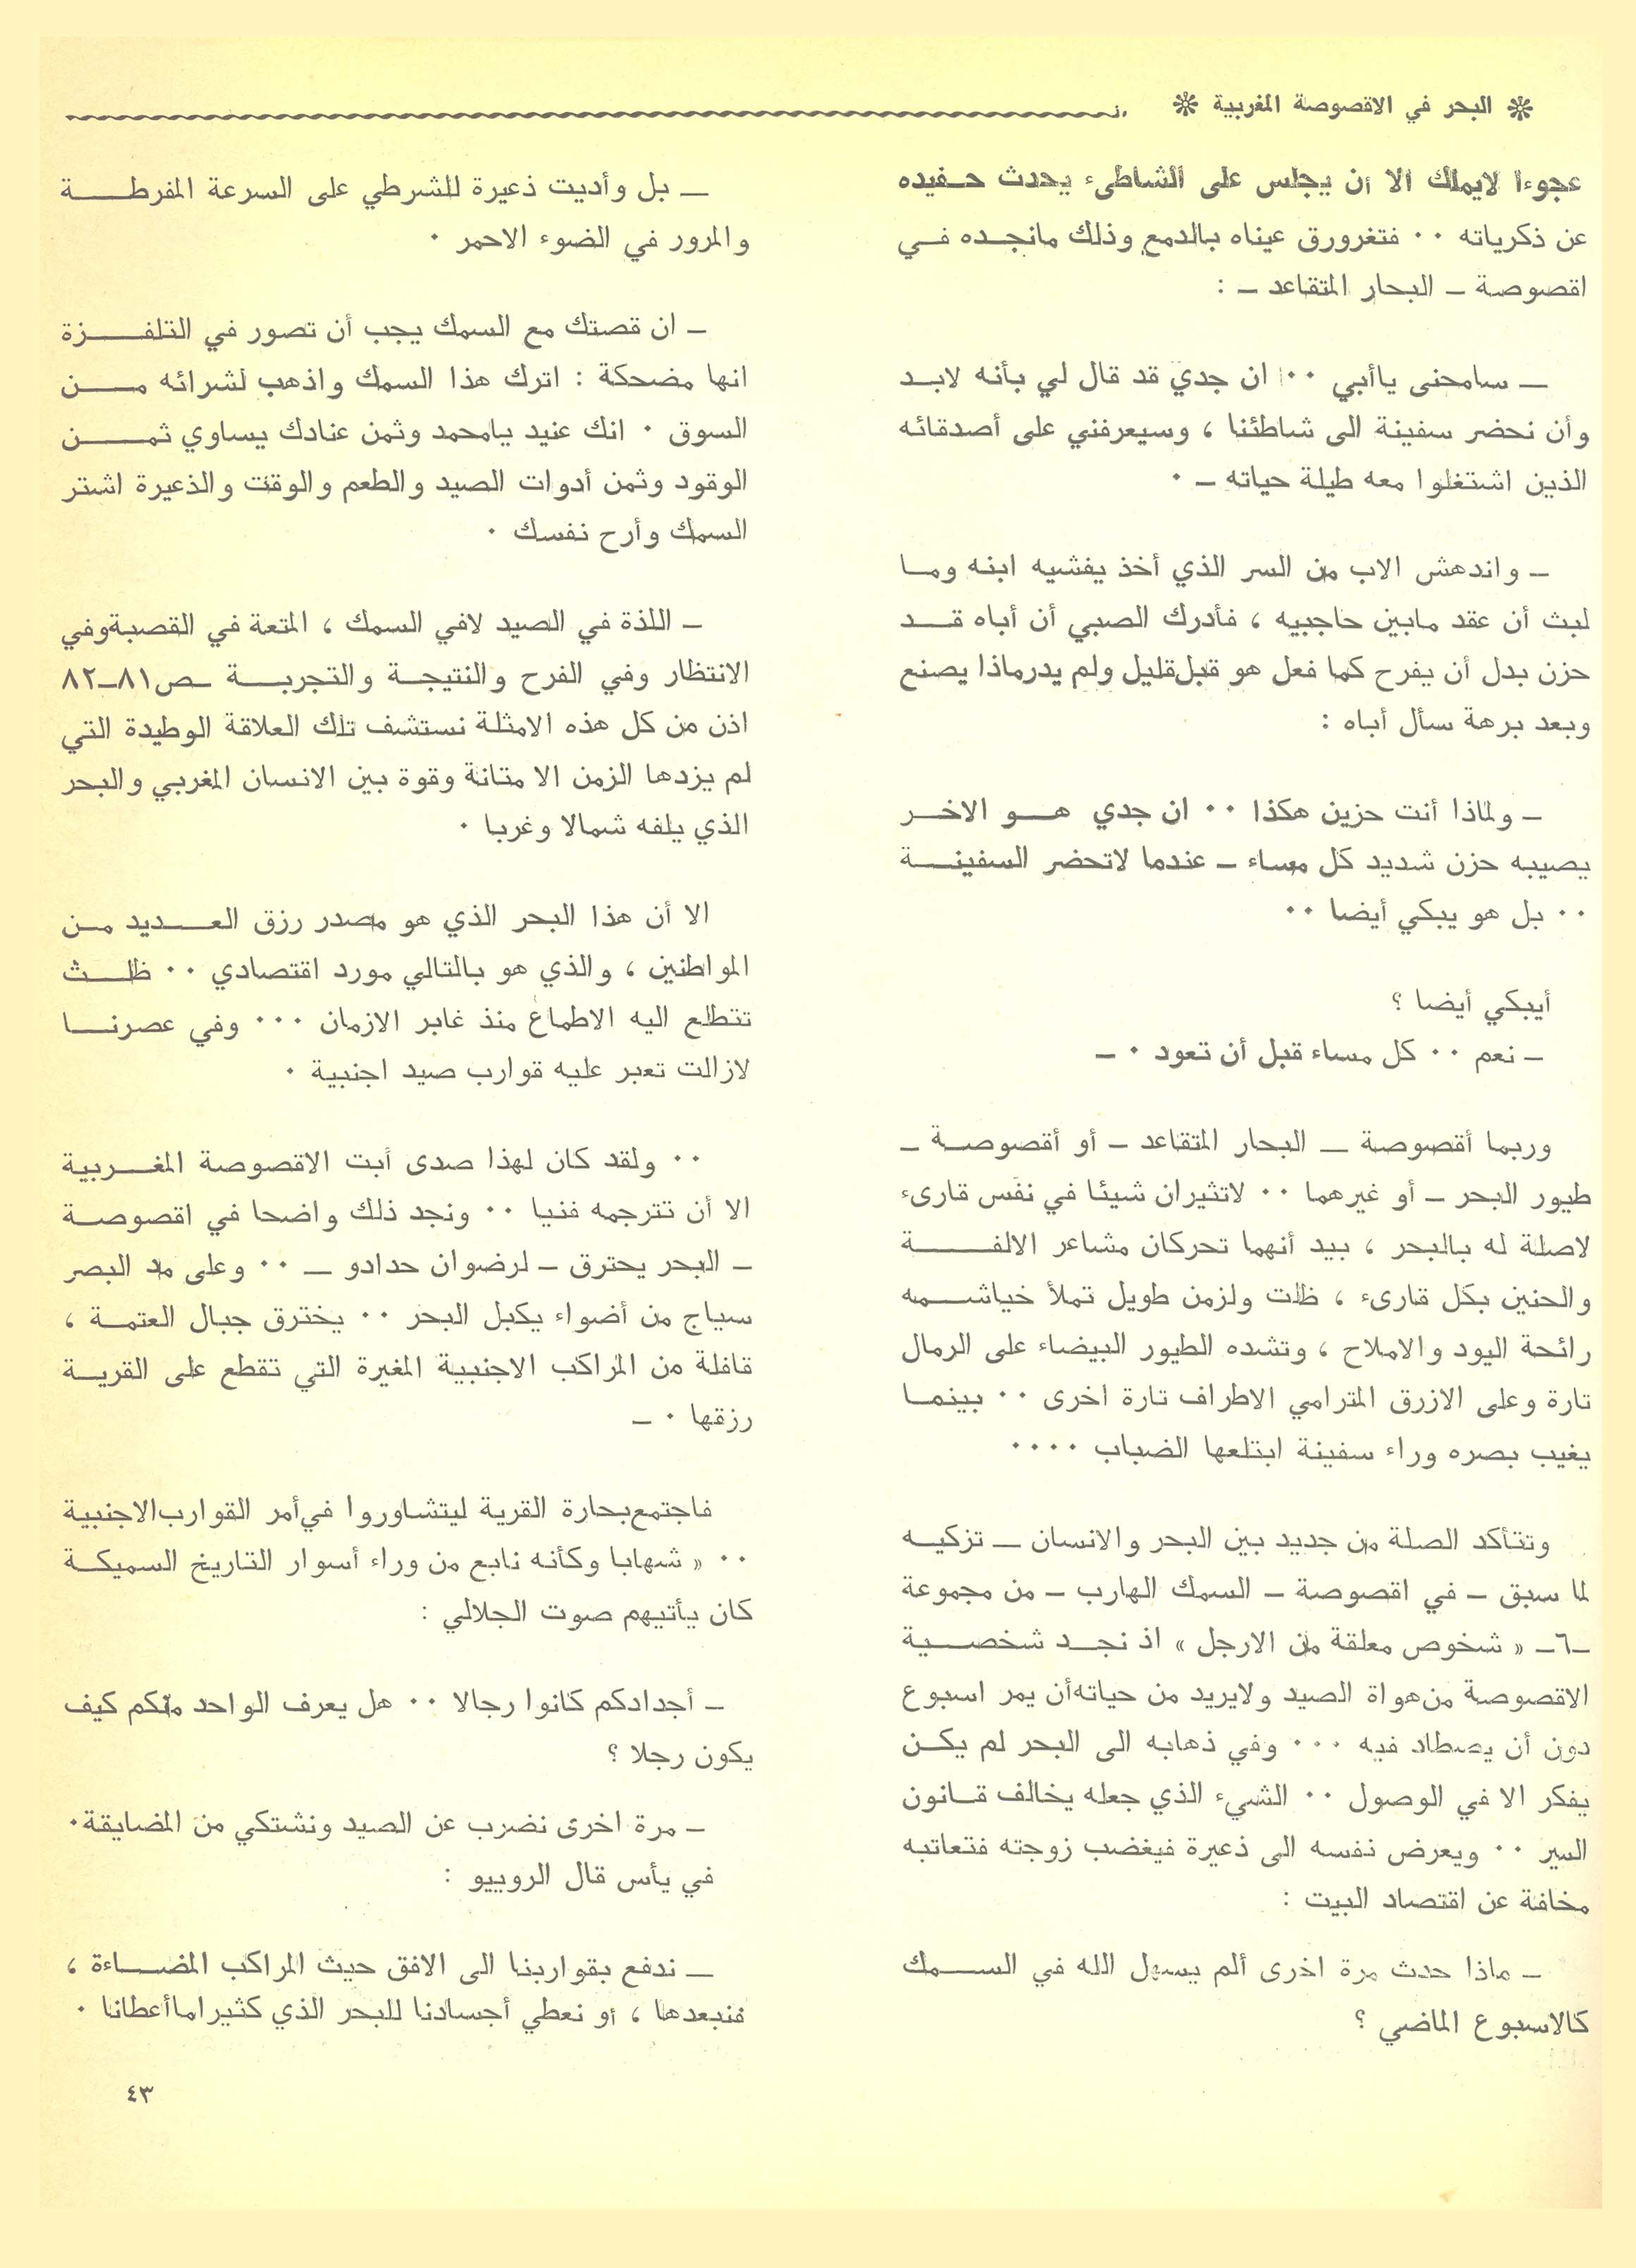 ❊ البحر في الاقصوصة المغربية ❊
عجوءا لايملك الا أن يجلس على الشاطىء يحدث حفيده
عن ذكرياته ٠٠ فتغرورق عيناه بالدمع وذلك مانجده في
اقصوصة – البحار المتقاعد – :
– سامحنى ياأبي ٠٠ ان جدي قد قال لي بأنه لابد
وأن نحضر سفينة الى شاطئنا ، وسيعرفني على أصدقائه
الذين اشتغلوا معه طيلة حياته – ٠
– واندهش الاب من السر الذي أخذ يفشيه ابنه وما
لبث أن عقد مابين حاجبيه ، فأدرك الصبي أن أباه قد
حزن بدل أن يفرح كما فعل هو قبل قليل ولم يدرماذا يصنع
وبعد برهة سأل أباه :
– ولماذا أنت حزين هكذا ٠٠ ان جدي هو الاخر
يصيبه حزن شديد كل مساء – عندما لاتحضر السفينة
٠٠ بل هو يبكي أيضا ٠٠
أيبكي أيضا ؟
– نعم ٠٠ كل مساء قبل أن تعود ٠ –
وربما أقصوصة – البحار المتقاعد – أو أقصوصة –
طيور البحر – أو غيرهما ٠٠ لاتثيران شيئا في نفس قارىء
لاصلة له بالبحر ، بيد أنهما تحركان مشاعر الالفة
والحنين بكل قارىء ، ظلت ولزمن طويل تملأ خياشمه
رائحة اليود والاملاح ، وتشده الطيور البيضاء على الرمال
تارة وعلى الازرق المترامي الاطراف تارة اخرى ٠٠ بينما
يغيب بصره وراء سفينة ابتلعها الضباب ٠٠٠٠
وتتأكد الصلة من جديد بين البحر والانسان – تزكيه
لما سبق – في اقصوصة – السمك الهارب – من مجموعة
–٦– « شخوص معلقة من الارجل » اذ نجد شخصية
الاقصوصة من هواة الصيد ولايريد من حياته أن يمر اسبوع
دون أن يصطاد فيه ٠٠٠ وفي ذهابه الى البحر لم يكن
يفكر الا في الوصول ٠٠ الشيء الذي جعله يخالف قانون
السير ٠٠ ويعرض نفسه الى ذعيرة فيغضب زوجته فتعاتبه
مخافة عن اقتصاد البيت :
– ماذا حدث مرة اخرى ألم يسهل الله في السمك
كالاسبوع الماضي ؟
– بل وأديت ذعيرة للشرطي على السرعة المفرطة
والمرور في الضوء الاحمر ٠
– ان قصتك مع السمك يجب أن تصور في التلفزة
انها مضحكة : اترك هذا السمك واذهب لشرائه من
السوق ٠ انك عنيد يامحمد وثمن عنادك يساوي ثمن
الوقود وثمن أدوات الصيد والطعم والوقت والذعيرة اشتر
السمك وأرح نفسك ٠
– اللذة في الصيد لافي السمك ، المتعة في القصبة وفي
الانتظار وفي الفرح والنتيجة والتجربة –ص٨١–٨٢
اذن من كل هذه الامثلة نستشف تلك العلاقة الوطيدة التي
لم يزدها الزمن الا متانة وقوة بين الانسان المغربي والبحر
الذي يلفه شمالا وغربا ٠
الا أن هذا البحر الذي هو مصدر رزق العديد من
المواطنين ، والذي هو بالتالي مورد اقتصادي ٠٠ ظلت
تتطلع اليه الاطماع منذ غابر الازمان ٠٠٠ وفي عصرنا
لازالت تعبر عليه قوارب صيد اجنبية ٠
٠٠ ولقد كان لهذا صدى أبت الاقصوصة المغربية
الا أن تترجمه فنيا ٠٠ ونجد ذلك واضحا في اقصوصة
– البحر يحترق – لرضوان حدادو – ٠٠ وعلى مد البصر
سياج من أضواء يكبل البحر ٠٠ يخترق جبال العتمة ،
قافلة من المراكب الاجنبية المغيرة التي تقطع على القرية
رزقها ٠ –
فاجتمع بحارة القرية ليتشاوروا في أمر القوارب الاجنبية
٠٠ « شهابا وكأنه نابع من وراء أسوار التاريخ السميكة
كان يأتيهم صوت الجلالي :
– أجدادكم كانوا رجالا ٠٠ هل يعرف الواحد منكم كيف
يكون رجلا ؟
– مرة اخرى نضرب عن الصيد ونشتكي من المضايقة٠
في يأس قال الروبيو :
– ندفع بقواربنا الى الافق حيث المراكب المضاءة ،
فنبعدها ، أو نعطي أجسادنا للبحر الذي كثيراماأعطانا ٠
٤٣